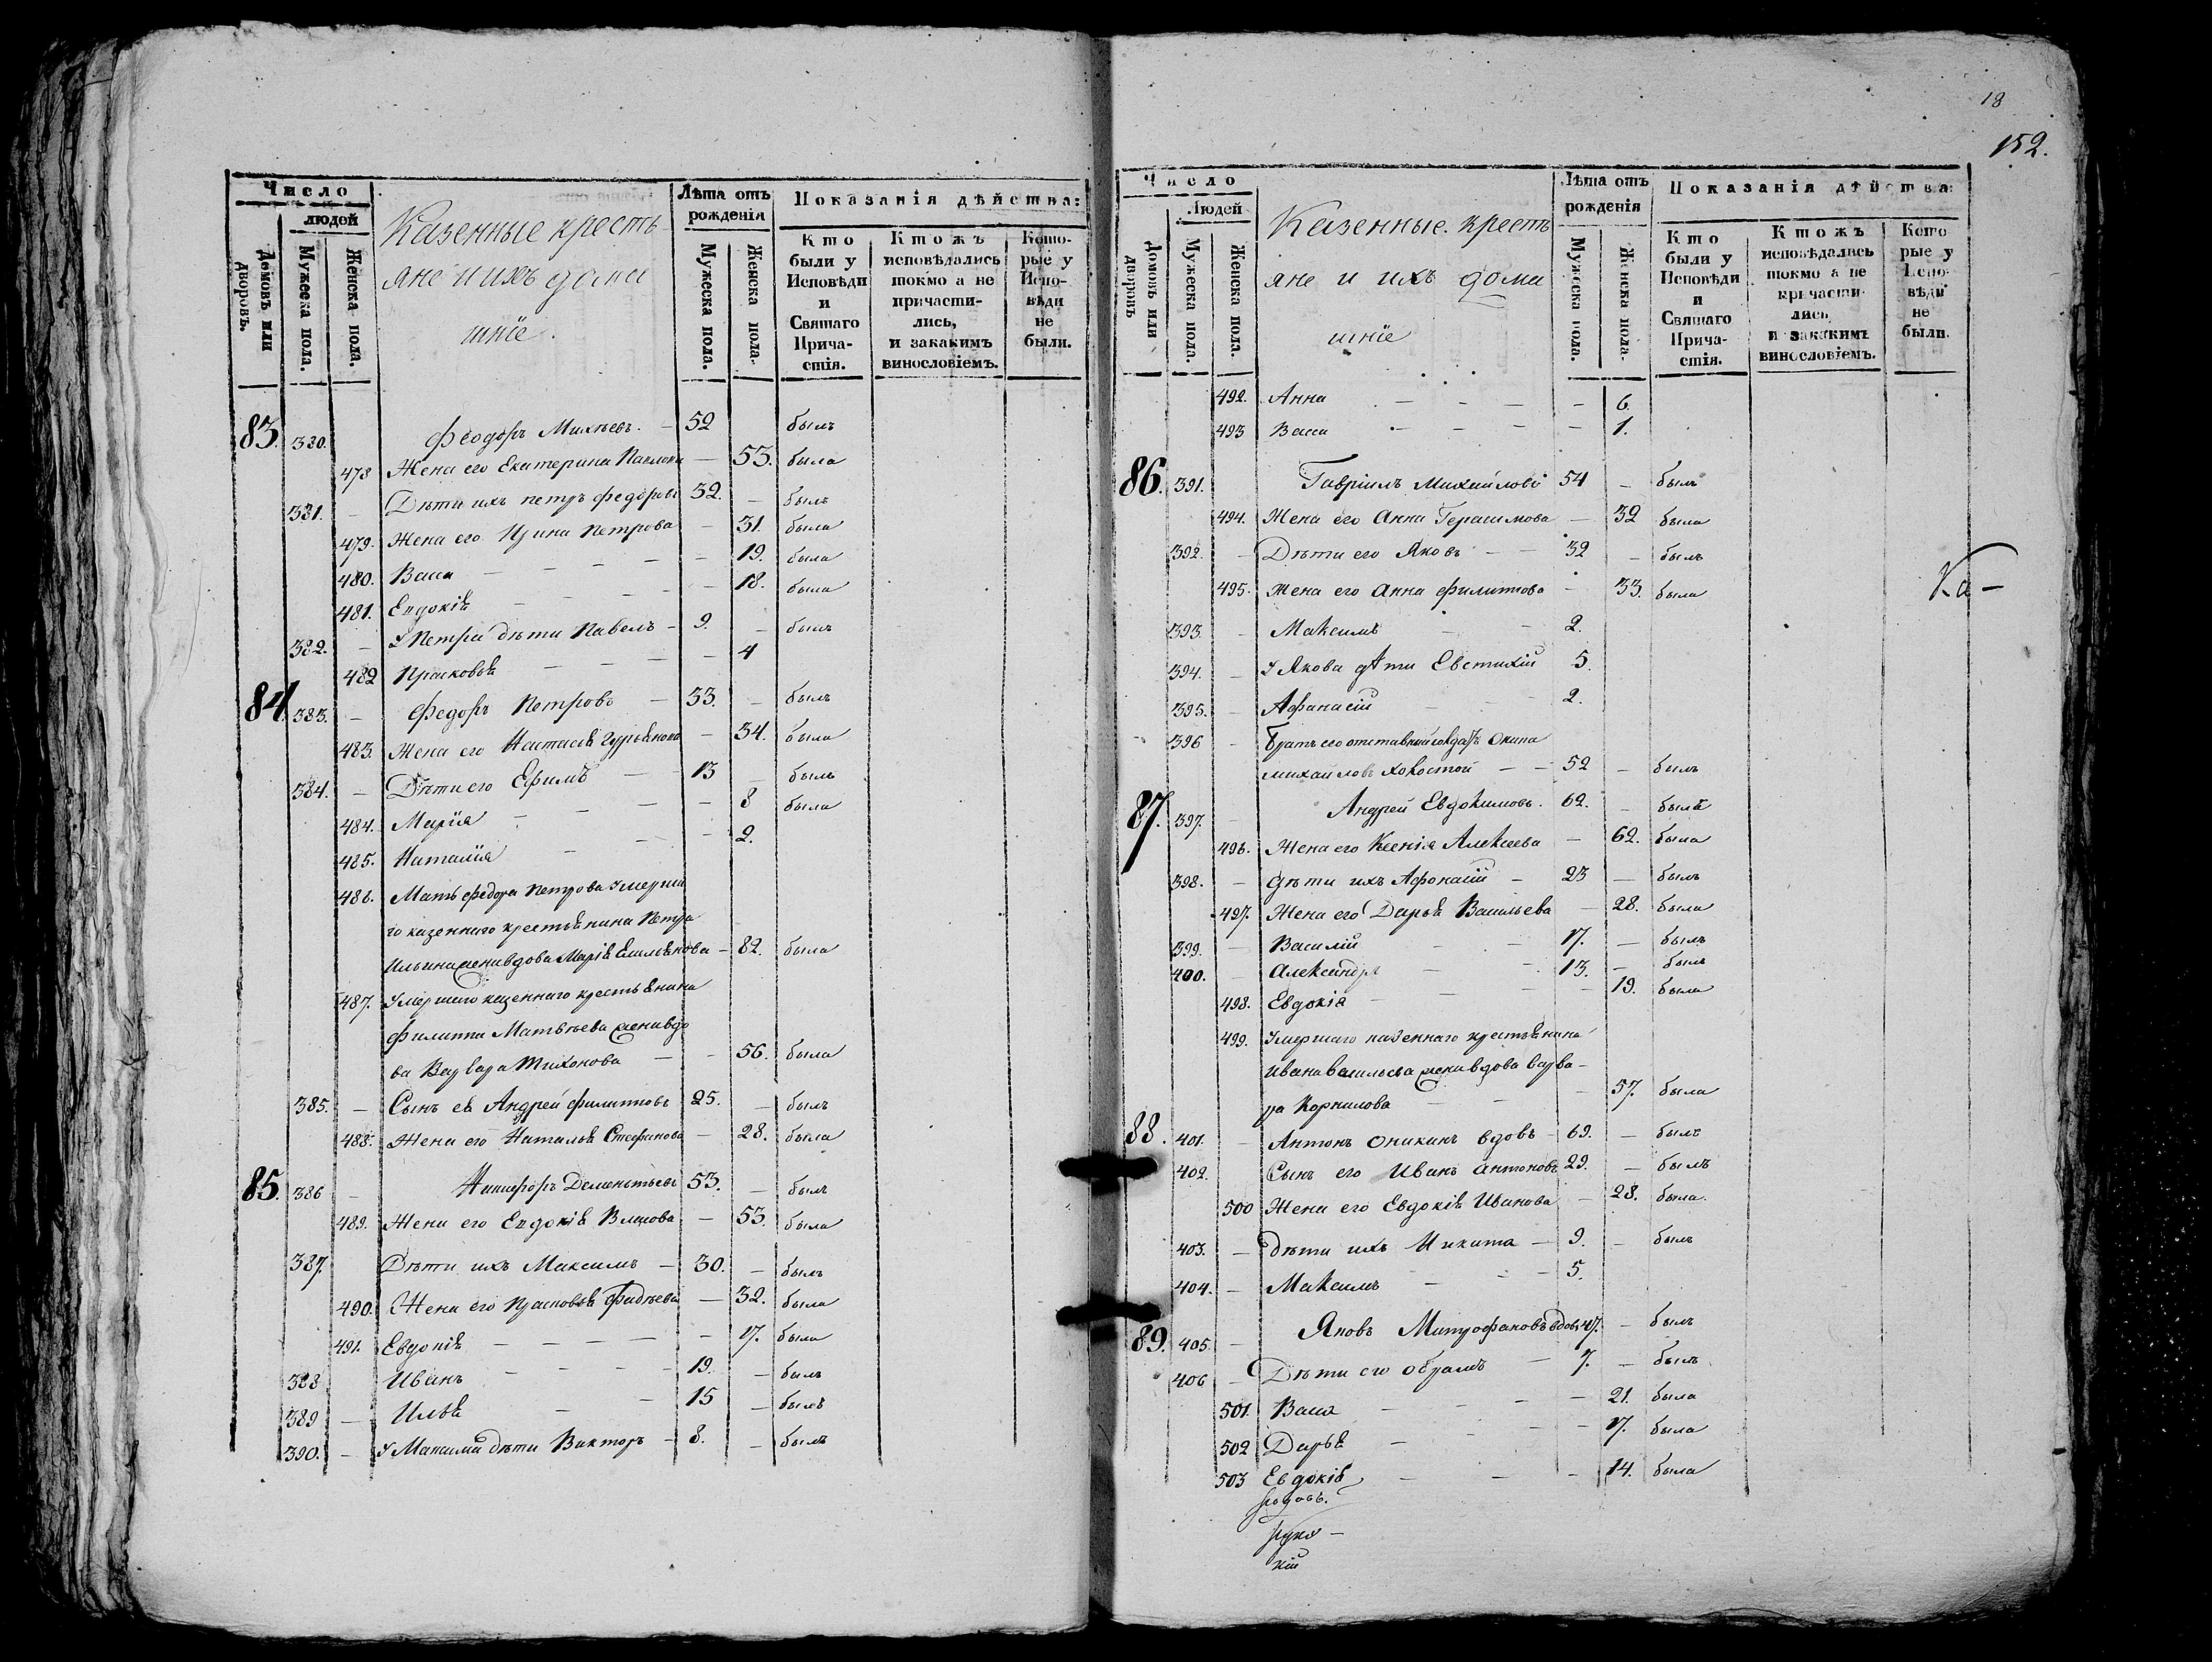 Число
людей
Домовъ или дворовъ.
Мужеска пола.
Женска пола.
Казенные кресть
яне и ихъ дома
шніе.
Лѣта отъ рожденія
Мужеска пола.
Женска пола.
Показанія дѣйства:
Кто были у Исповѣди и Святаго Прича-стія.
Ктожъ исповѣдались токмо а не причасти-лись, и закакимъ винословіемъ.
Кото-рые у Испо-вѣди не были.
83. 380. Феодоръ Михѣевъ. – 52 былъ
478 Жена его Екатерина Павлова – 53. была
381. – Дѣти ихъ петръ федоровъ 32. – былъ
479. Жена его Ирина Петрова – 31. была
480. Васса – – – – – 19. была
481. Евдокіѣ – – – – 18. была
382. – У Петра дѣти Павелъ – 9. – былъ
482 Прасковьѣ – – – – 4
84. 383. – Федоръ Петровъ – 33. – былъ
483. Жена его Настасьѣ Гурьѣнова – 34. была
384. – Дѣти его Ефимъ – 13 – былъ
484. Марія – – – – 8 была
485. Наталія – – – – 2.
486. Мать федора Петрова умерша
го казеннаго крестьѣнина Петра
Ильина жена вдова Маріѣ Емельѣнова – 82. была
487. Умершаго казеннаго крестьѣнина
Филиппа Матвѣева жена вдо
ва Варвара Тихонова – – 56. была
385. – Сынъ еѣ Андрей филипповъ 25. – былъ
488. Жена его Натальѣ Стефанова – 28. была
85. 386 – Никифоръ Дементьевъ 53. – былъ
489. Жена его Евдокіѣ Власова – 53. была
387. Дѣти ихъ Максимъ – 30. – былъ
490. Жена его Прасковьѣ Фадѣева – 32. была
491. Евдокіѣ – – – – – 17. была
388 Иванъ – – – 19. – былъ
389 – Ильѣ – – 15 – былъ
390. – У Максима дѣти Викторъ – 8. – былъ
18
152.
Число
Людей
Домовъ или дворовъ
Мужеска пола.
Женска пола.
Казенные кресть
яне и ихъ дома
шніе
Лѣта отъ рожденія
Мужеска пола.
Женска пола.
Показанія дѣйства:
Кто были у Исповѣди и Святаго Прича-стія.
Ктожъ исповѣдались токмо а не причасти-лись, и закакимъ винословіемъ.
Кото-рые у Испо-вѣди не были.
492. Анна – – – – – 6.
493 Васса – – – – – 1.
86. 391. Гавріилъ Михайловъ 54 – былъ
494. Жена его Анна Герасимова – 32 была
392. – Дѣти его Яковъ – – 32 – былъ
495. Жена его Анна филиппова – 33. была
Ка –
393. – Максимъ – – 2.
394. – У Якова дѣти Евстихій 5.
395. – Афанасій – – 2.
396 – Братъ его отставный солдатъ Онипа
михайловъ холостой – – 52 – былъ
87. 397. – Андрей Евдокимовъ. 62. – былъ
496. Жена его Ксенія Алексеева – 62. была
398. – Дѣти ихъ Афонасій – 23 – былъ
497. Жена его Дарьѣ Васильева – 28. была
399. – Василій – – 17. – былъ
400. – Александръ – – 13. – былъ
498. Евдокія – – – – 19. была
499. Умершаго казеннаго крестьѣнина
Ивана васильева жена вдова варва–
ра Корнилова – – – 57. была
88. 401. – Антонъ Оникинъ вдовъ – 69. – былъ
402. Сынъ его Иванъ антоновъ 29. – былъ
500 Жена его Евдокіѣ Иванова – 28. была.
403. – Дѣти ихъ Никита – 9. – былъ
404. – Максимъ – – – 5.
89. 405. – Яковъ Митрофановъ вдовъ 47. – былъ
406 – Дѣти его Абрамъ – 7. – былъ
501. Васса – – – – 21. была
502 Дарьѣ – – – 17. была
503 Евдокіѣ – – – 14. была